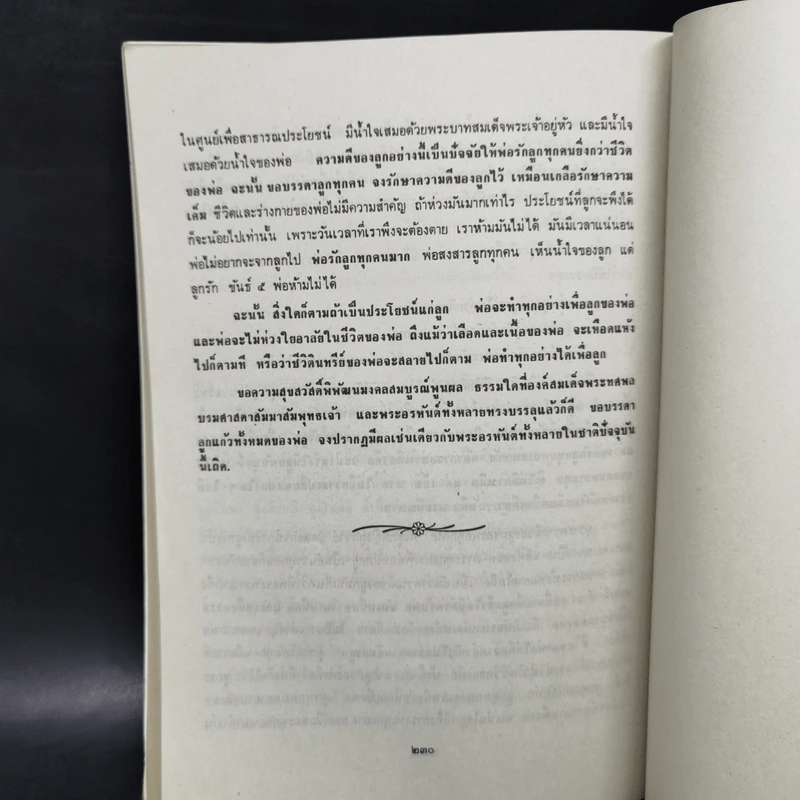 ในศูนย์เพื่อสาธารณประโยชน์ มีน้ำใจเสมอด้วยพระบาทสมเด็จพระเจ้าอยู่หัว และมีน้ำใจ
เสมอด้วยน้ำใจของพ่อ ความดีของลูกอย่างนี้เป็นปัจจัยให้พ่อรักลูกทุกคนยิ่งกว่าชีวิต
ของพ่อ ฉะนั้น ขอบรรดาลูกทุกคน จงรักษาความดีของลูกไว้ เหมือนเกลือรักษาความ
เค็ม ชีวิตและร่างกายของพ่อไม่มีความสำคัญ ถ้าห่วงมันมากเท่าไร ประโยชน์ที่ลูกจะพึงได้
ก็จะน้อยไปเท่านั้น เพราะวันเวลาที่เราพึงจะต้องตาย เราห้ามมันไม่ได้ มันมีเวลาแน่นอน
พ่อไม่อยากจะจากลูกไป พ่อรักลูกทุกคนมาก พ่อสงสารลูกทุกคน เห็นน้ำใจของลูก แต่
ลูกรัก ขันธ์ ๕ พ่อห้ามไม่ได้
ฉะนั้น สิ่งใดก็ตามถ้าเป็นประโยชน์แก่ลูก พ่อจะทำทุกอย่างเพื่อลูกของพ่อ
และพ่อจะไม่ห่วงใยอาลัยในชีวิตของพ่อ ถึงแม้ว่าเลือดและเนื้อของพ่อ จะเหือดแห้ง
ไปก็ตามที หรือว่าชีวิตินทรีย์ของพ่อจะสลายไปก็ตาม พ่อทำทุกอย่างได้เพื่อลูก
ขอความสุขสวัสดิ์พิพัฒนมงคลสมบูรณ์พูนผล ธรรมใดที่องค์สมเด็จพระทศพล
บรมศาสดาสัมมาสัมพุทธเจ้า และพระอรหันต์ทั้งหลายทรงบรรลุแล้วก็ดี ขอบรรดา
ลูกแก้วทั้งหมดของพ่อ จงปรากฏมีผลเช่นเดียวกับพระอรหันต์ทั้งหลายในชาติปัจจุบัน
นี้เถิด.
๒๓๐